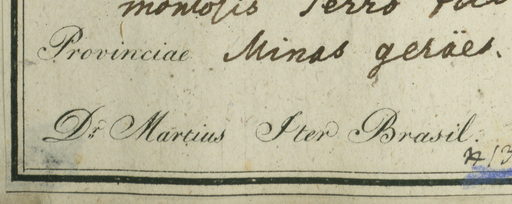 montosis Serro
Provinciae Minas geräes.
Dr. Martius Iter Brasil.